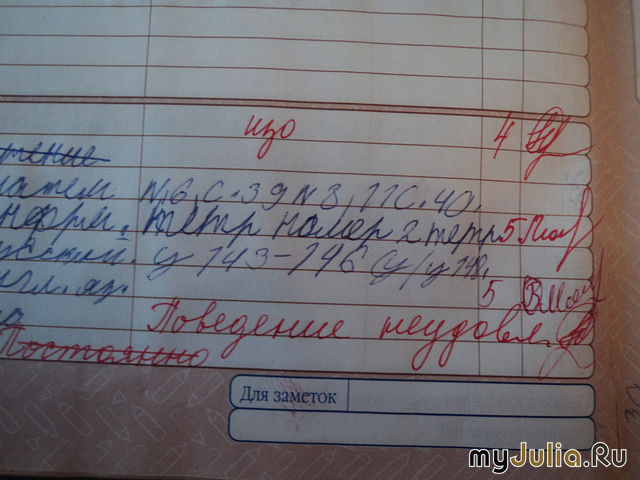 изо 4
чтение
матем N6, С.39 N 8, 11 С.40.
информ. тетр номер 2 тетр 5
усский. у 143-146 у/у 148.
нгл. яз. 5
Поведение неудовл.
Постоянно
Для заметок
myJulia.Ru